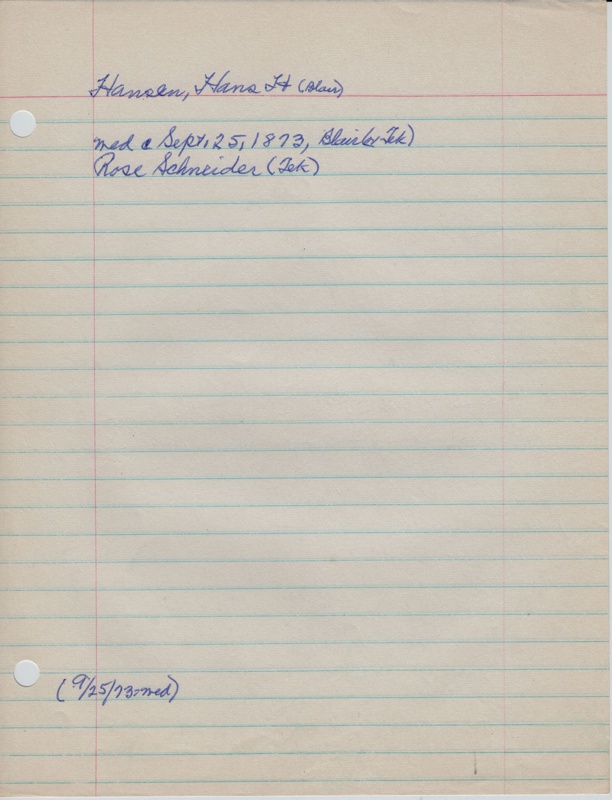 Hansen, Hans H (Blair)
med c Sept. 25, 1873, Blair or Tek)
Rose Schneider (Tek)
(9/25/73-med)